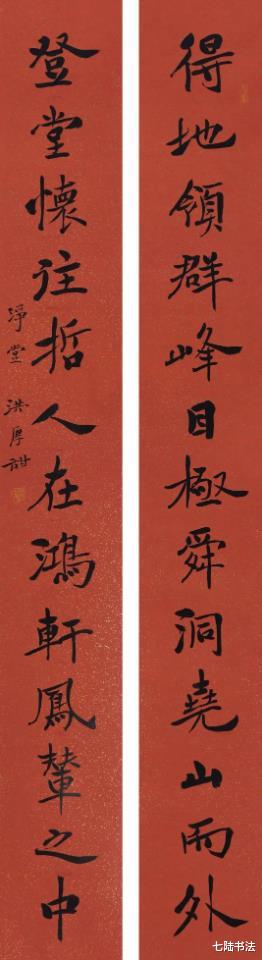 得地領群峰目極舜洞堯山而外
登堂懷往哲人在鴻軒鳳輦之中
淨堂 洪厚甜
七陆书法